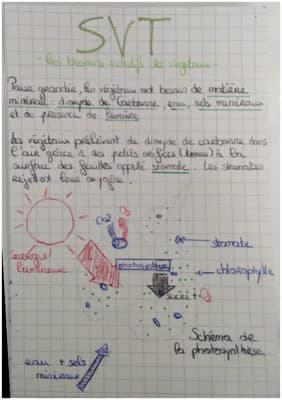 SVT
- Les besoins nutritifs des végétaux -
Pour grandir, les végétaux ont besoin de matière
minérale : dioxyde de Carbonne, eau, sels minéraux
et de présence de lumière
Les végétaux prélèvent du dioxyde de carbonne dans
l'air grâce à des petits orifices (trous) à la
surface des feuilles appelé stomate. Les stomates
rejettent leur oxygène.
Co2
O2
énergie
lumineuse
photosynthèse
stomate
chlorophylle
sucre + O2
Schéma de
la photosynthèse
eau + sels
minéraux